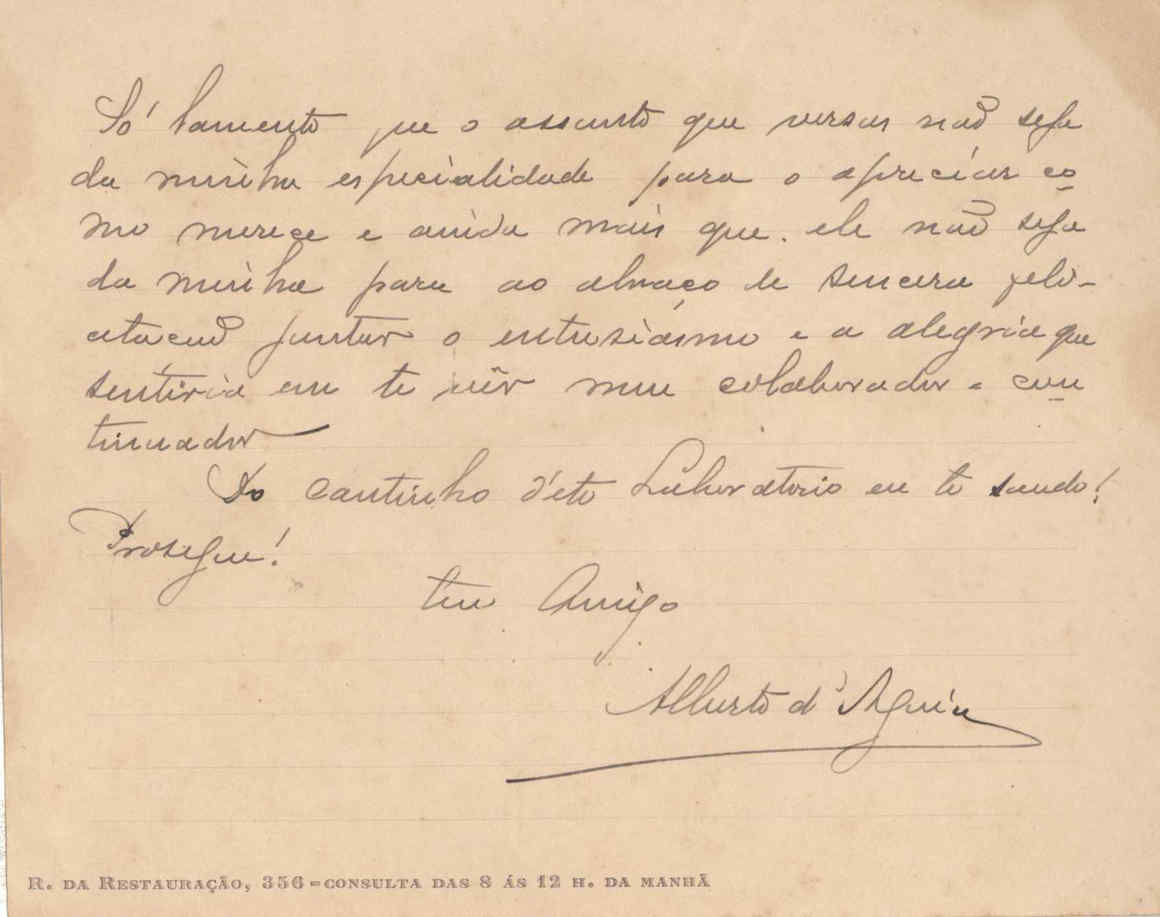 Só lamento que o assunto que versas não seja
da minha especialidade para o apreciar co
mo merece e ainda mais que ele não seja
da minha para ao abraço de sincera feli-
citação juntar o entusiásmo e a alegria que
sentiria em te vêr meu colaborador e con
tinuador
Do cantinho d'éte Laboratorio eu te saudo!
Prosegue!
teu Amigo
Alberto d'Aguiar
R. DA RESTAURAÇÃO, 356=CONSULTA DAS 8 ÁS 12 H. DA MANHÃ